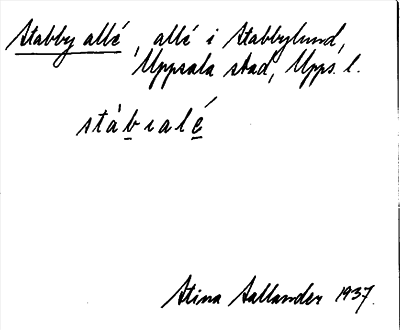 Stabby allé, allé i Stabbylund,
Uppsala stad, Upps. l.
stábıalé
Stina Sallander 1937.